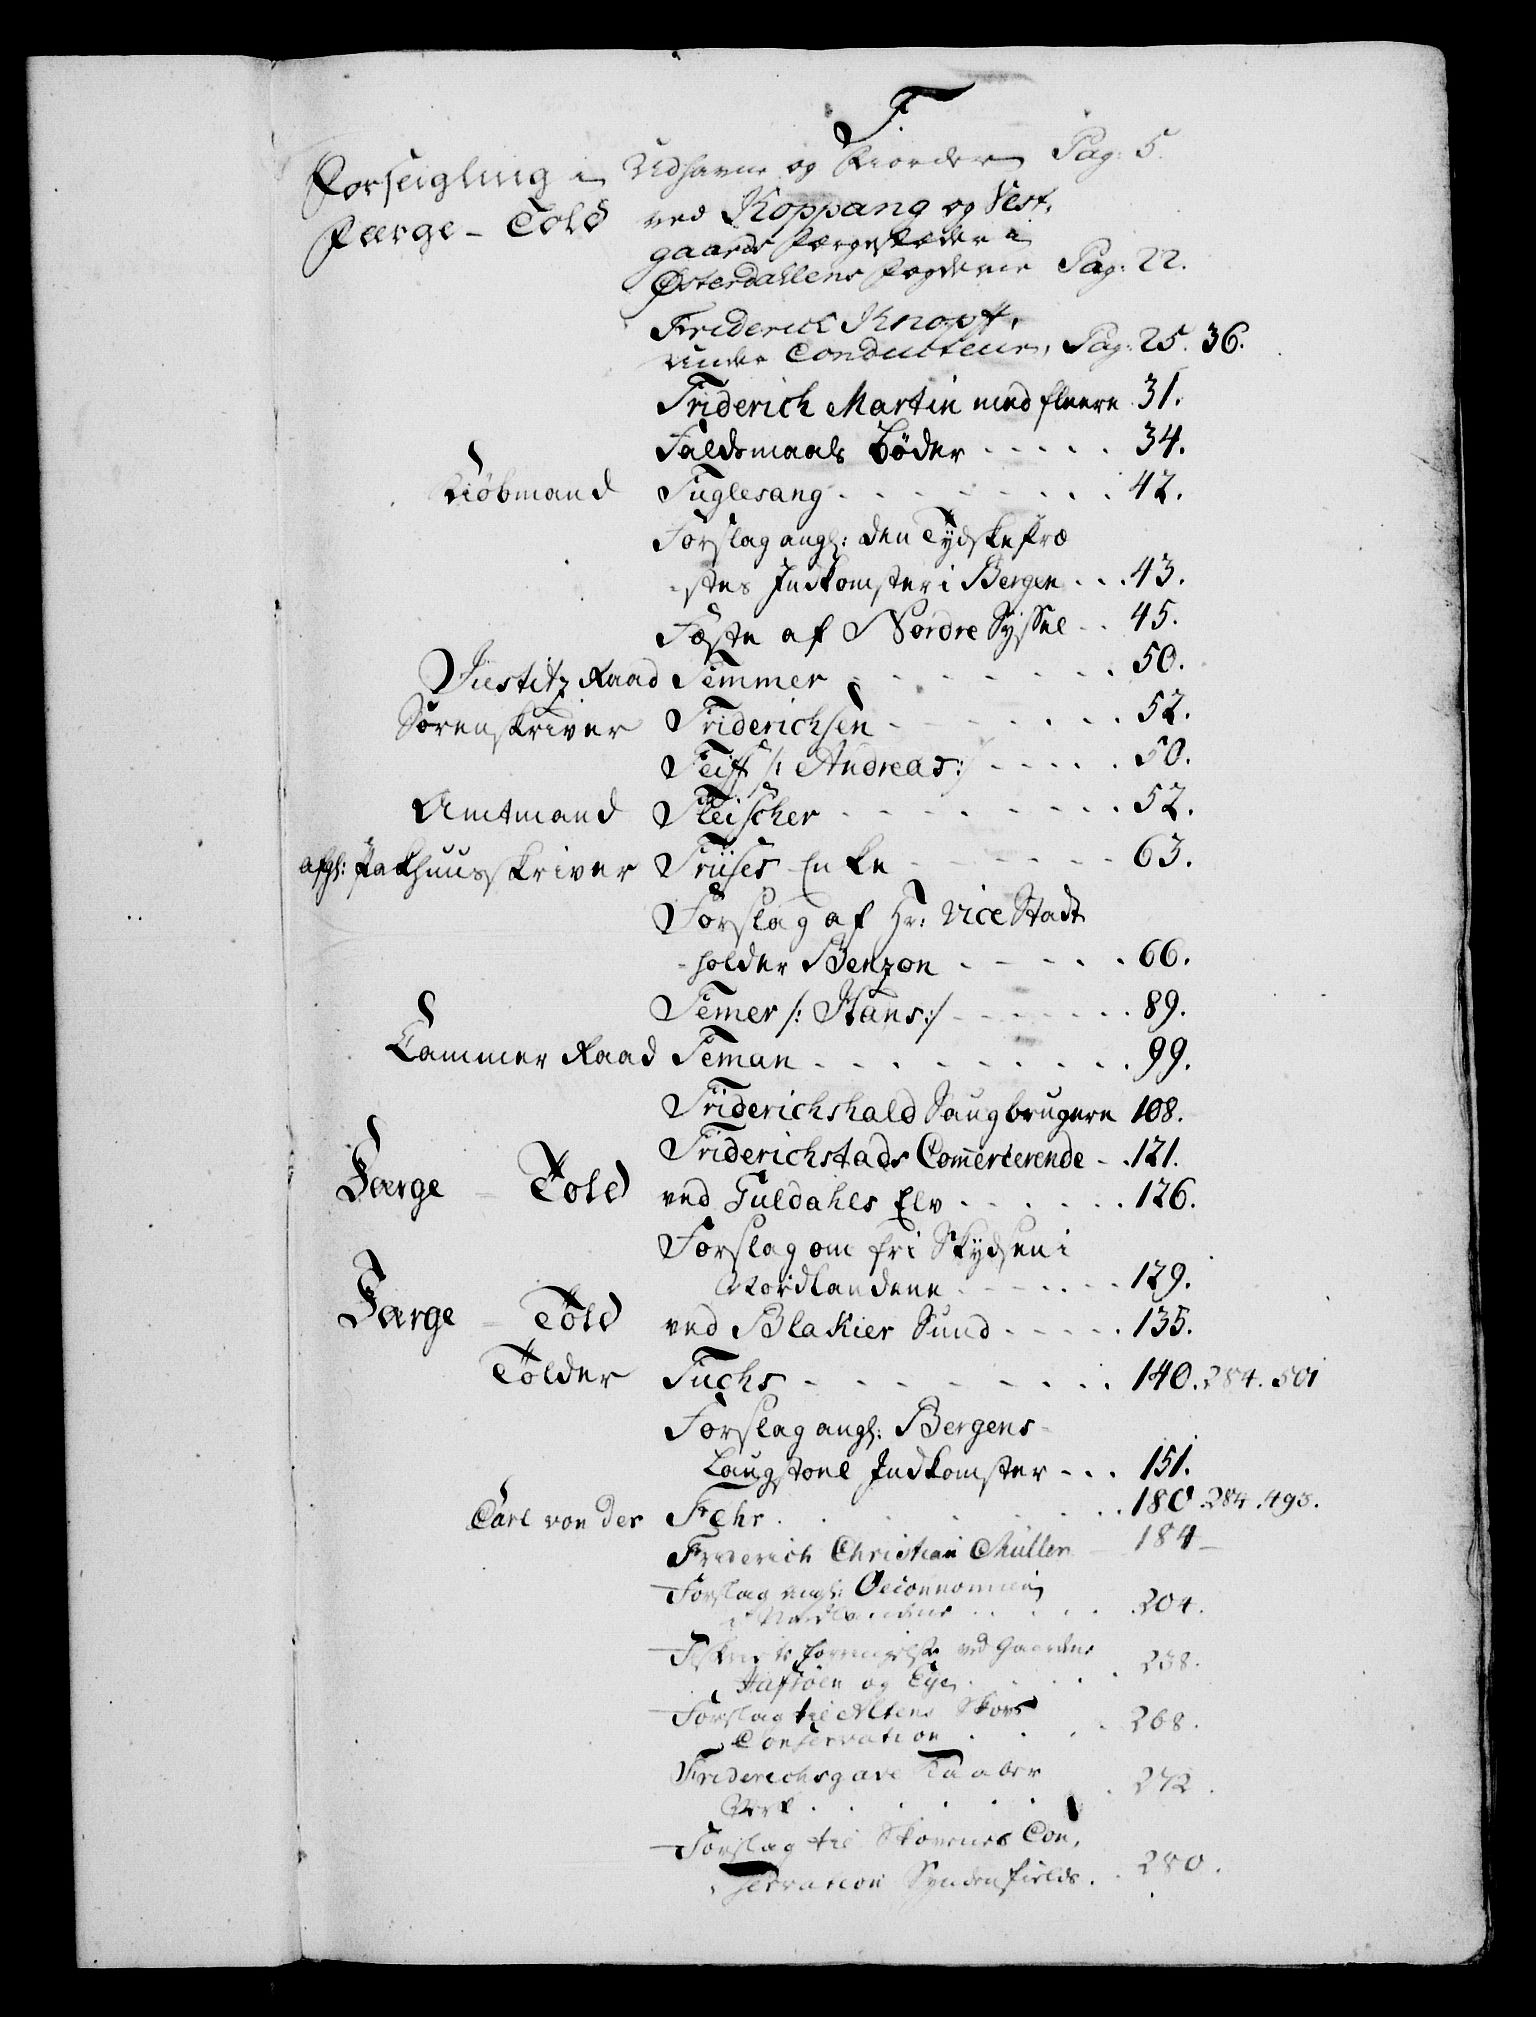 F.
Forseigling i Udhavne og Fiorder Pag: 5.
Færge-Told ved Koppang og Vest-
gaards Færgestæder i
Østerdallens Fogderie Pag: 22.
Friderich Knopff,
under Conducteur, Pag: 25. 36.
Friderich Martin med fleere 31.
Faldsmaals Bøder 34.
Kiöbmand Fuglesang 42.
Forslag angl: den Tydske Præ
-stes Indkomster i Bergen 43.
Fæste af Nordre Syssel 45.
Justitz Raad Femmer 50.
Sorenskriver Friderichsen 52.
Feiff /: Andreas :/ 50.
Amtmand Fleischer 52.
afgl: Pakhuusskriver Friises Enke 63.
Forslag af Hr: Vice Stadt
-holder Benzon 66.
Femer /: Hans :/ 89.
Cammer Raad Feman 99.
Friderichshald Saugbrugere 108.
Friderichstads Comercerende 121.
Færge - Told ved Guldahls Elv 126.
Forslag om fri Skydsen i
Nordlandene 129.
Færge - Told ved Blakier Sund 135.
Tolder Fuchs 140. 284. 501
Forslag angl: Bergens
Laugstoel Indkomster 151.
Carl von der Fehr 180. 284. 493.
Friderich Christian Müller 184
Forslag angl: Oeconomien
i Nordlandene 204.
Fiskeriets ved Gaardene
Hafsöen og Eye 238.
Forslag til Altens Skovs
Conservation 268.
Friderichsgave Kaaber
Verk 272.
Forslag til Skovenes Con-
servation Syndenfields 280.